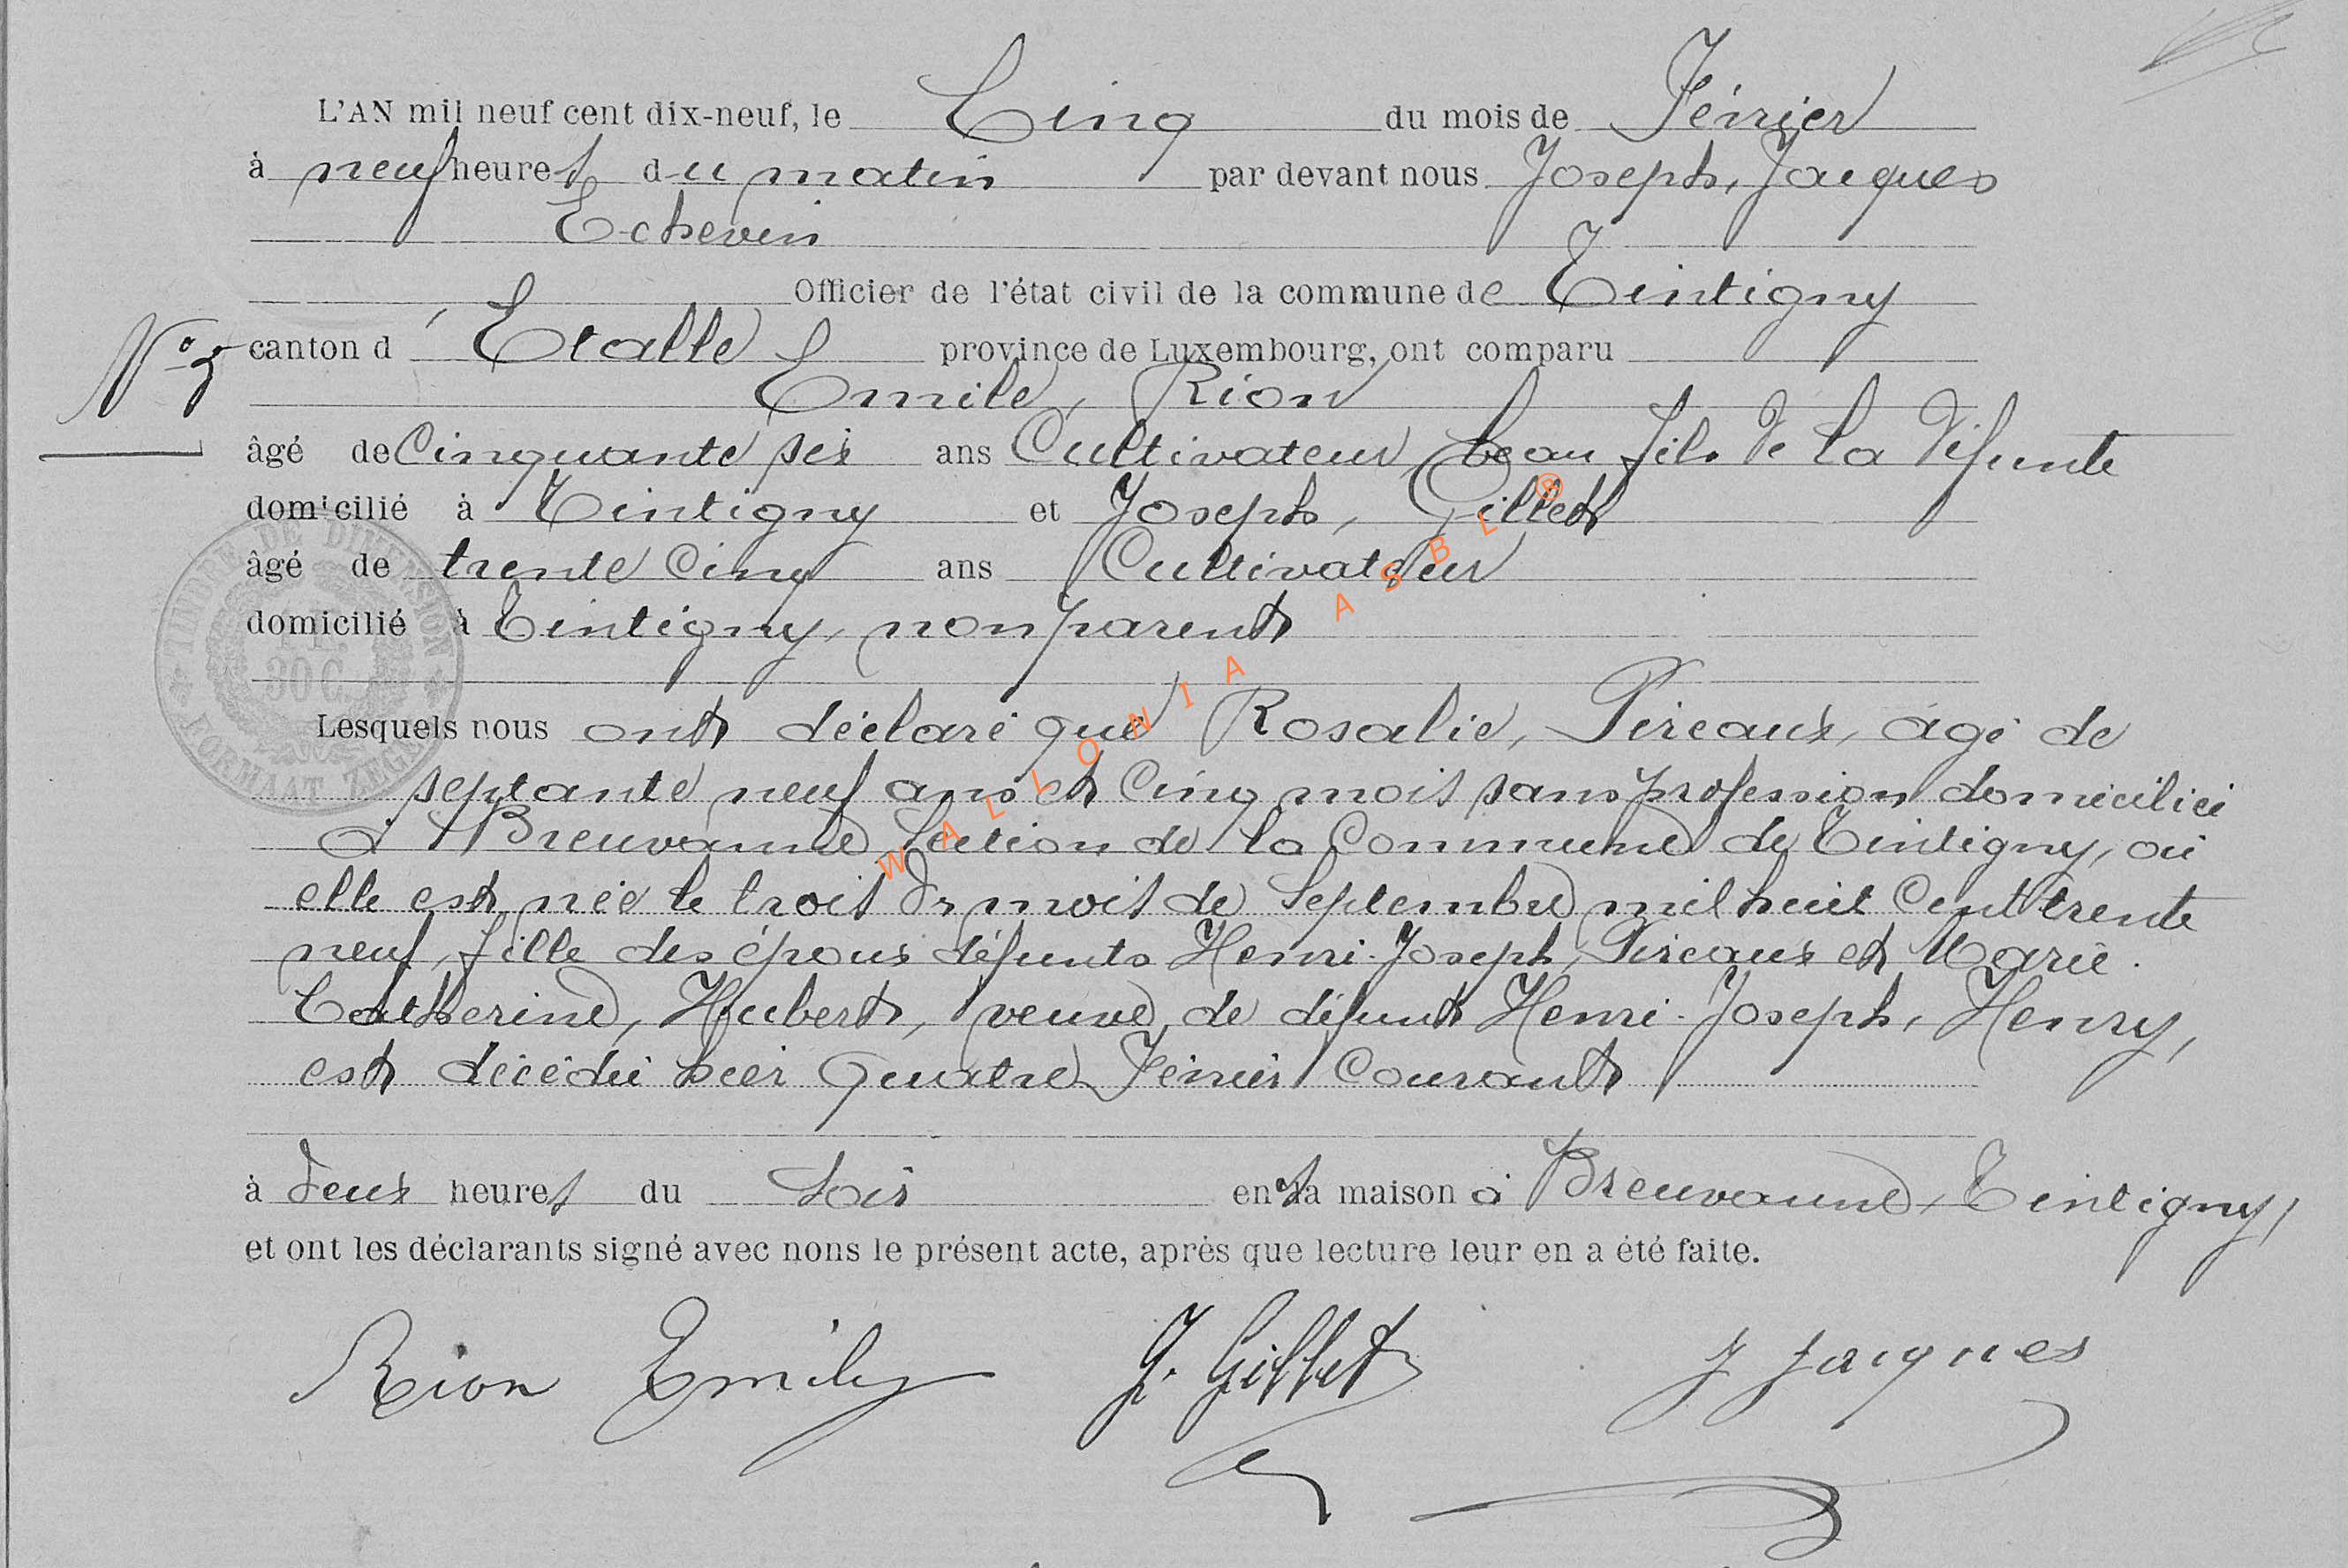 L'AN mil neuf cent dix-neuf, le Cinq du mois de Février
à neuf heures du matin par devant nous Joseph, Jacques
Echevin
Officier de l'état civil de la commune de Tintigny
N° 5
canton d'Etalle province de Luxembourg, ont comparu
Emile, Rion
âgé de Cinquante six ans Cultivateur, beau fils de la défunte
domicilié à Tintigny et Joseph, Gillet
âgé de trente cinq ans Cultivateur
domicilié à Tintigny, non parent
Lesquels nous ont déclaré que Rosalie, Pireaux, agé de
septante neuf ans et Cinq mois sans profession domiciliée
à Breuvanne Section de la Commune de Tintigny, où
elle est née le trois du mois de Septembre mil huit Cent trente
neuf, fille des époux défunts Henri-Joseph, Pireaux et Marie-
Catherine, Hubert, veuve de défunt Henri-Joseph, Henry,
est décédée hier quatre Février Courant
à deux heures du soir en sa maison à Breuvanne, Tintigny,
et ont les déclarants signé avec nons le présent acte, après que lecture leur en a été faite.
Rion Emile J. Gillet J Jacques
TIMBRE DE DIMENSION
30 C.
FORMAAT ZEGEL
WALLONIA ASBL ®